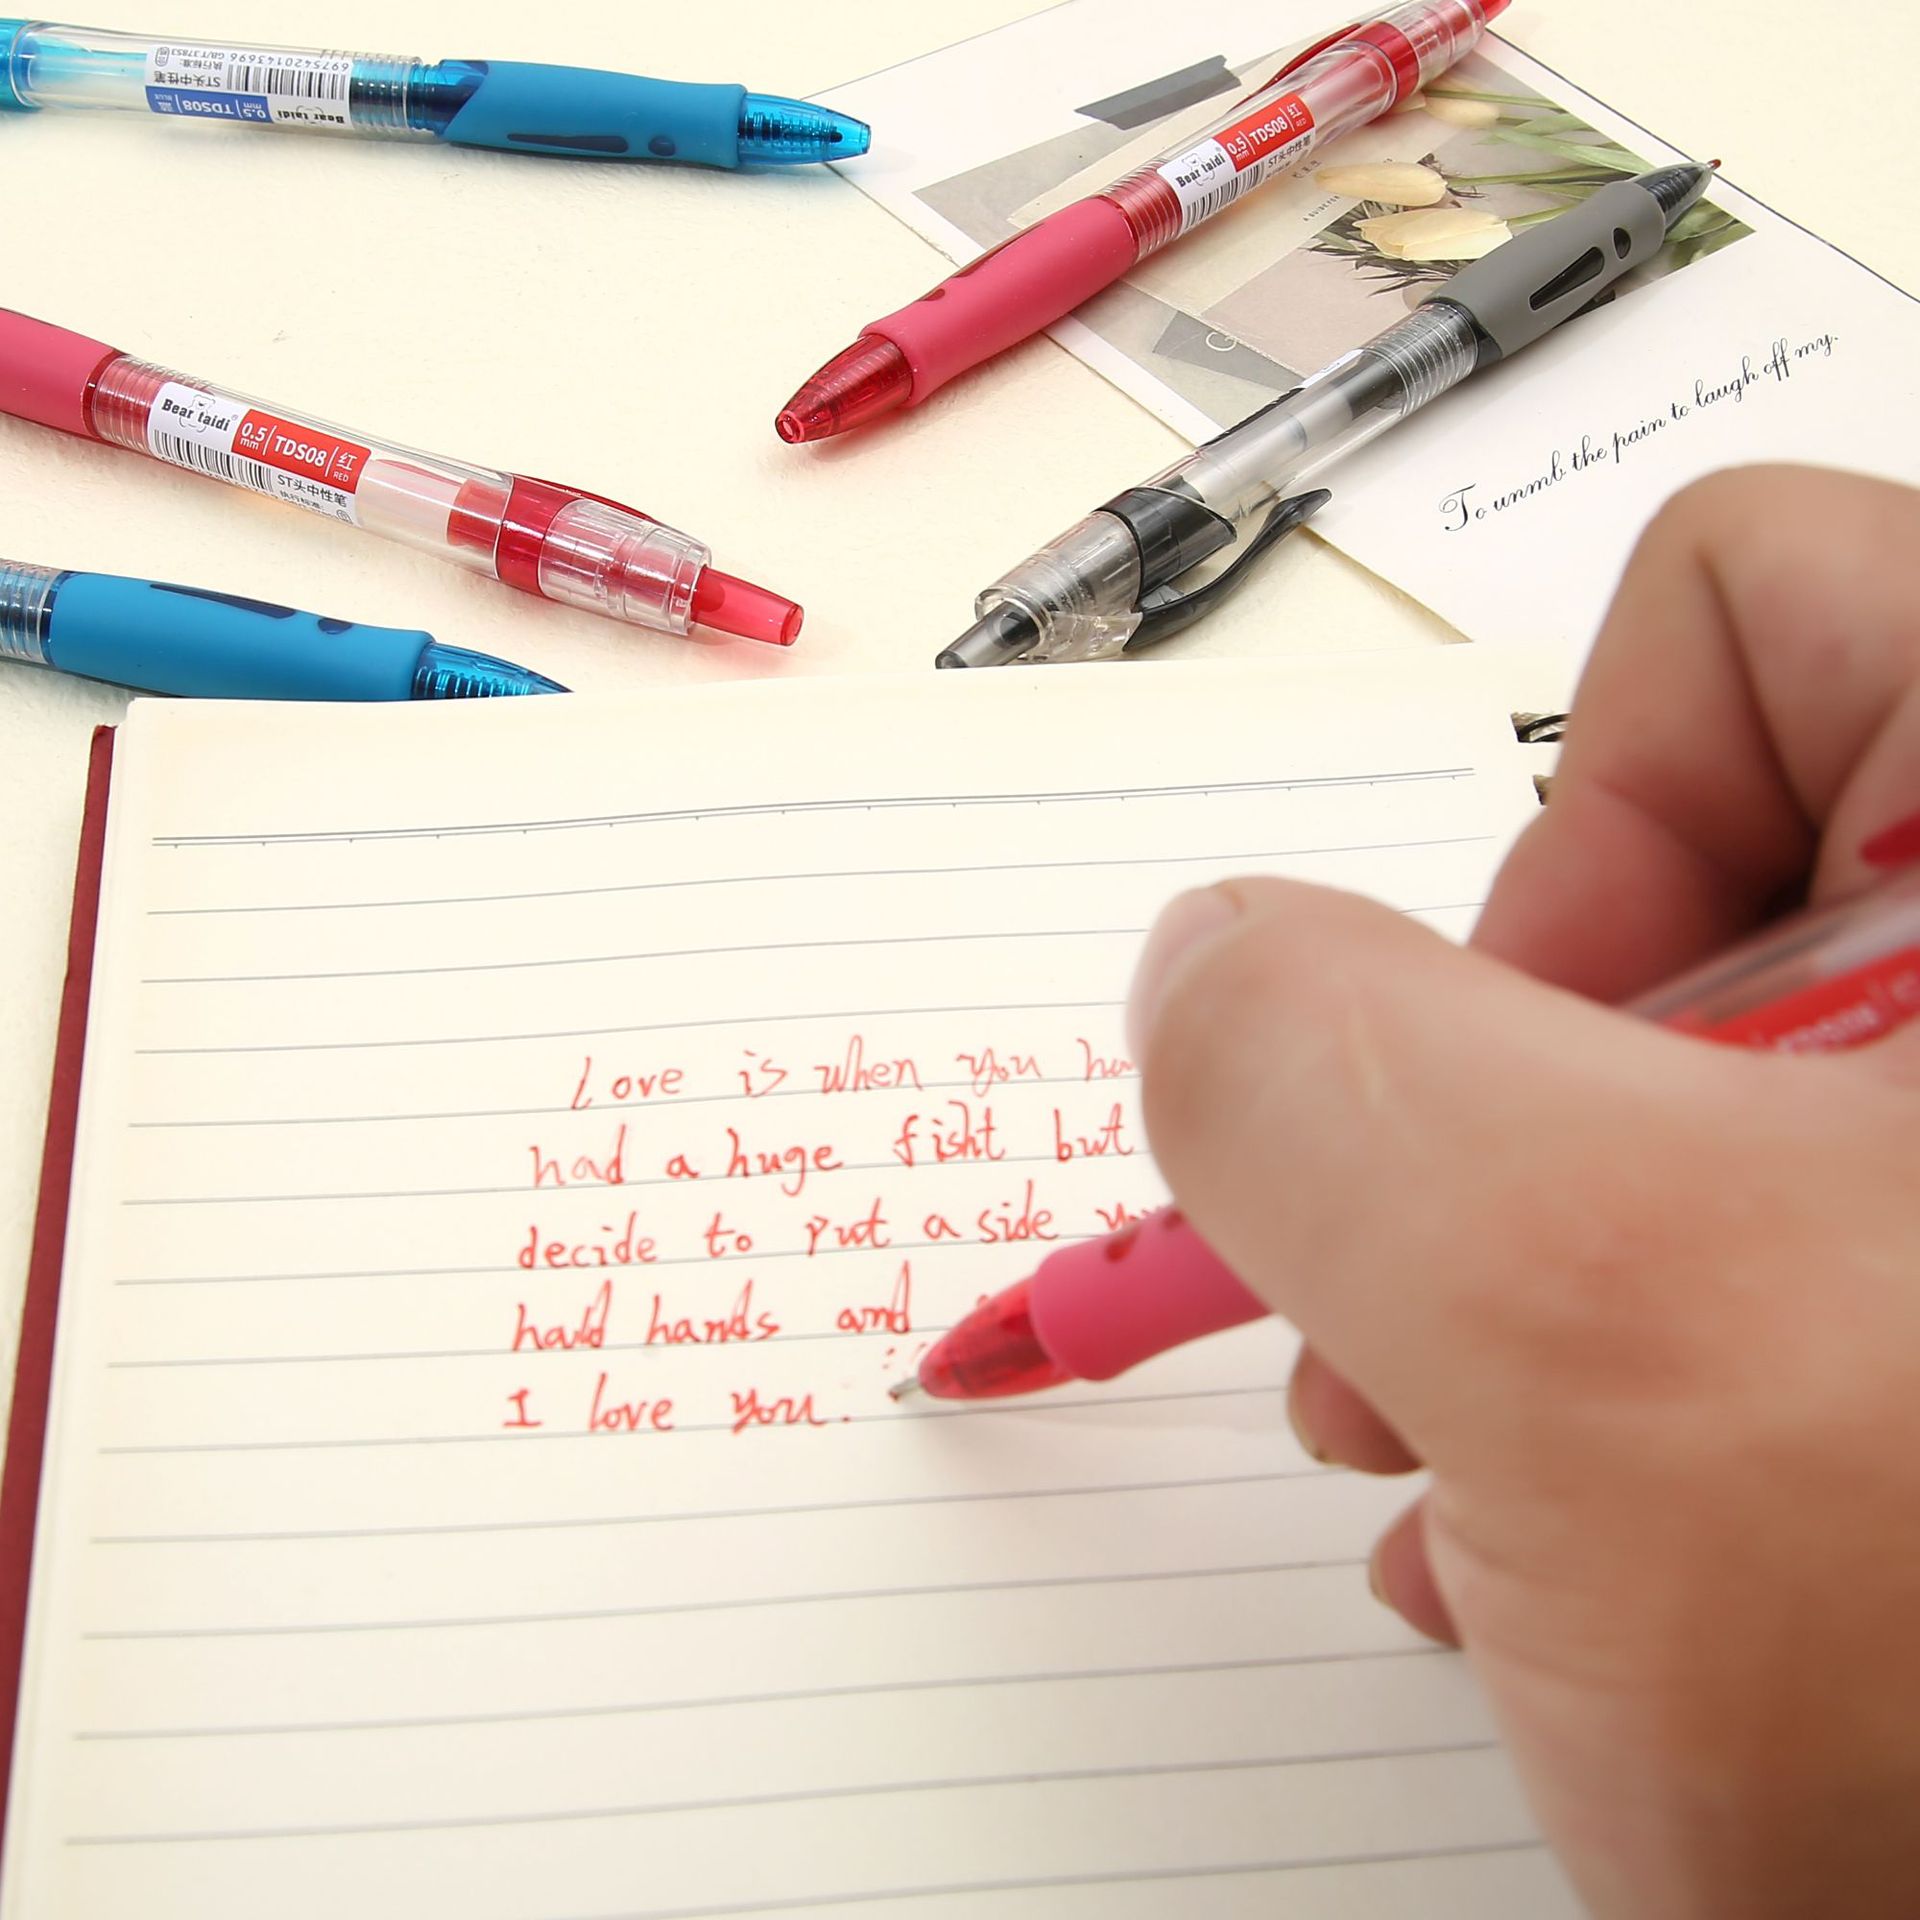 Bear taidi
0.5 mm TDS08 BLUE
ST头中性笔
执行标准: GB/T 37853
6975420143696
Bear taidi 0.5 mm TDS08 红 RED
ST头中性笔
A GUIDE FOR
Bear taidi 0.5 mm TDS08 红 RED
ST头中性笔
执行标准:
To unmb the pain to laugh off my.
Love is when you
had a huge fisht but
decide to put a side
hands and
I love you.